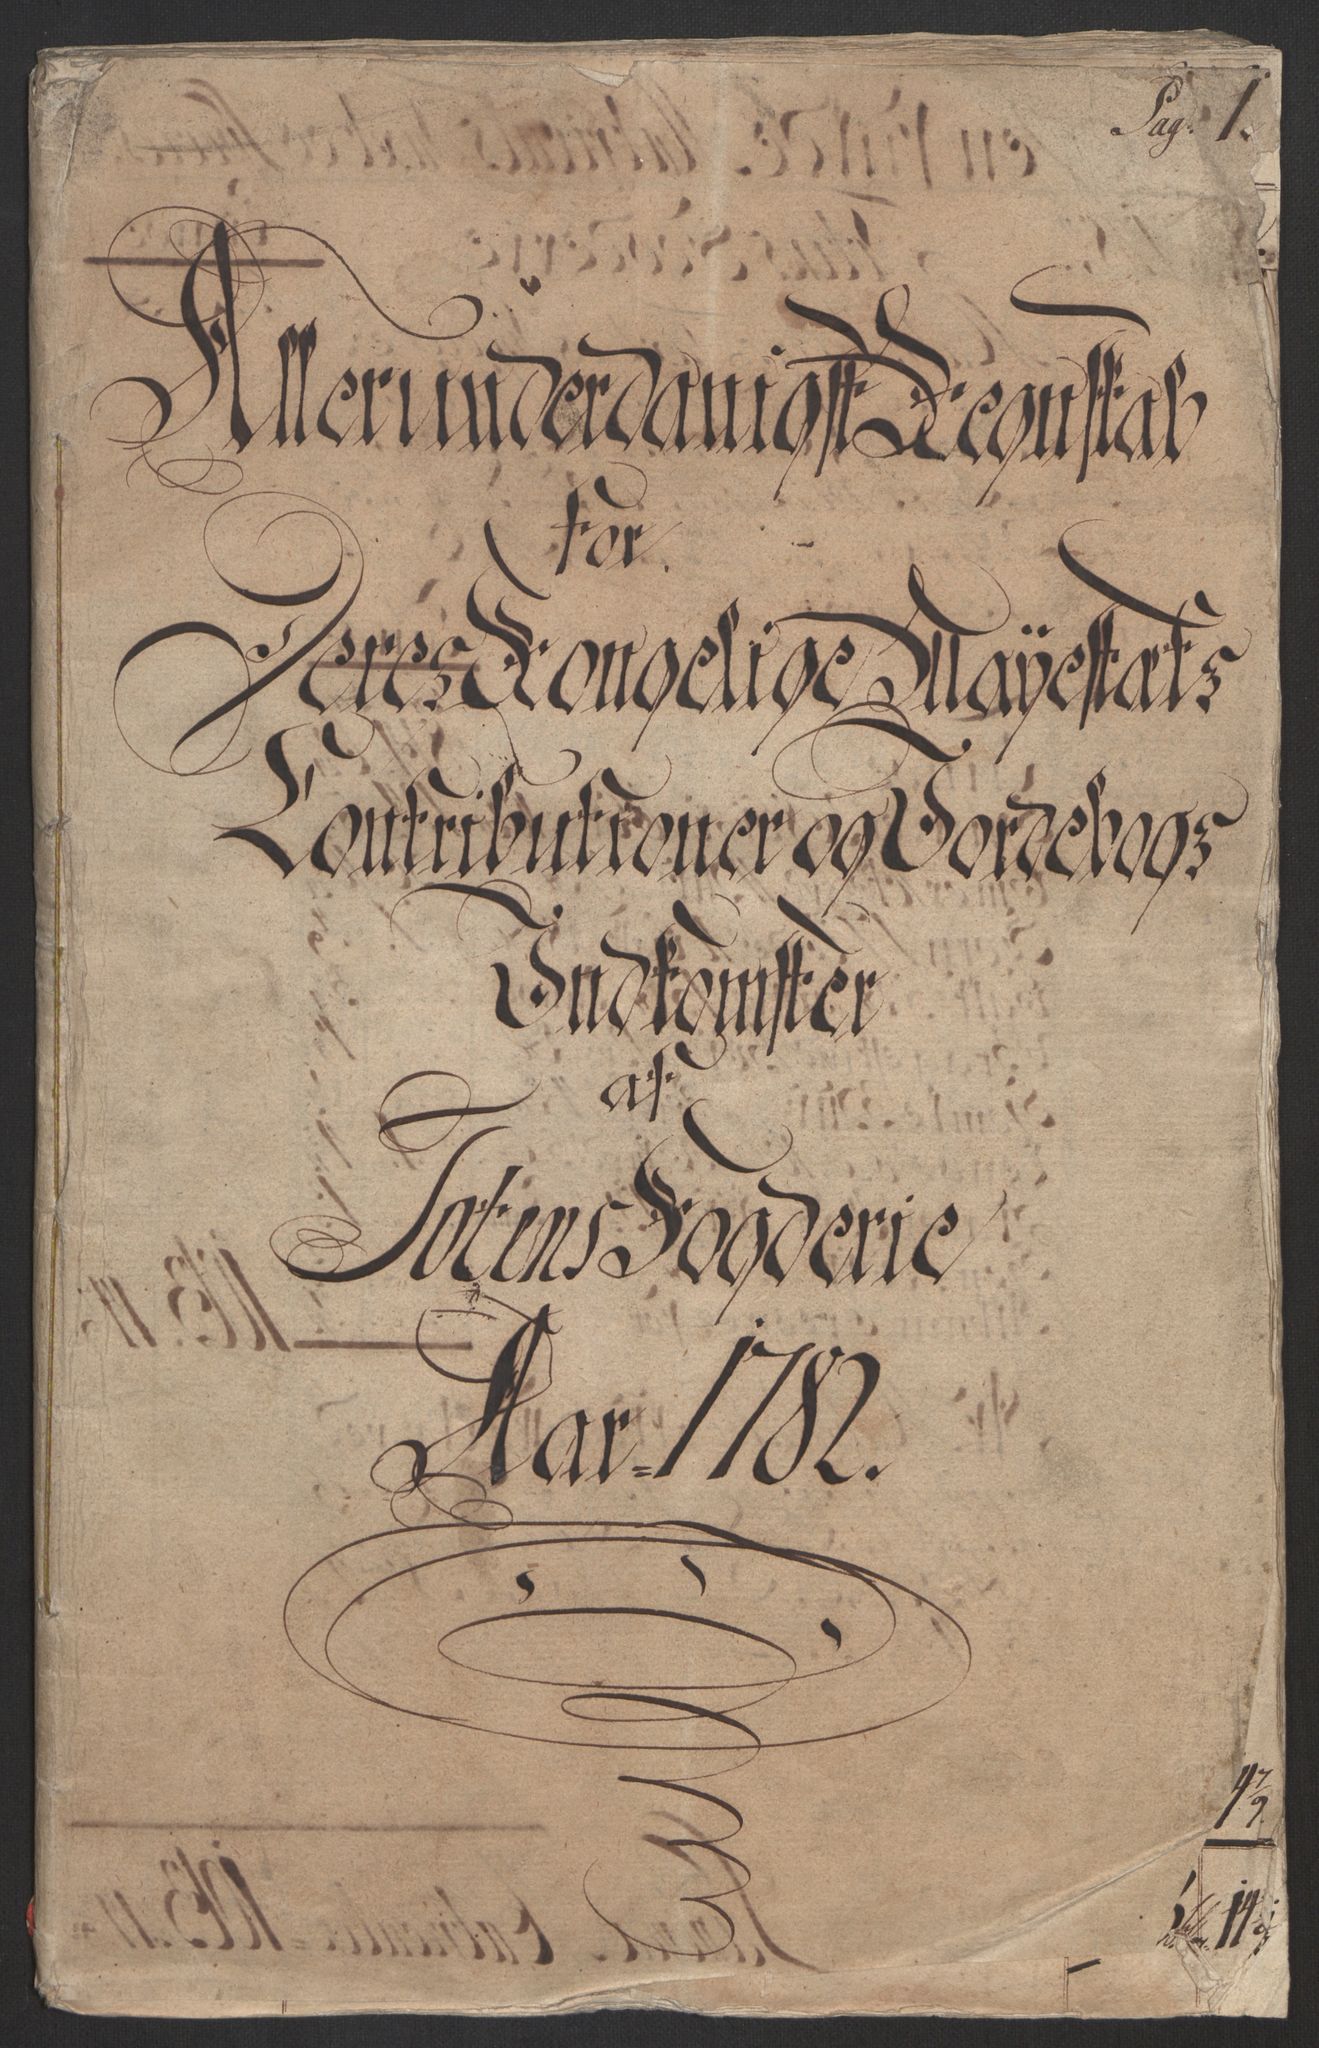 Pag. 1.
Allerunderdanigst Regnskab
for
Deres Kongelige Mayestæts
Contributioner og Jordebogs
Indkomster
af
Totens Fogderie
Aar=1782.